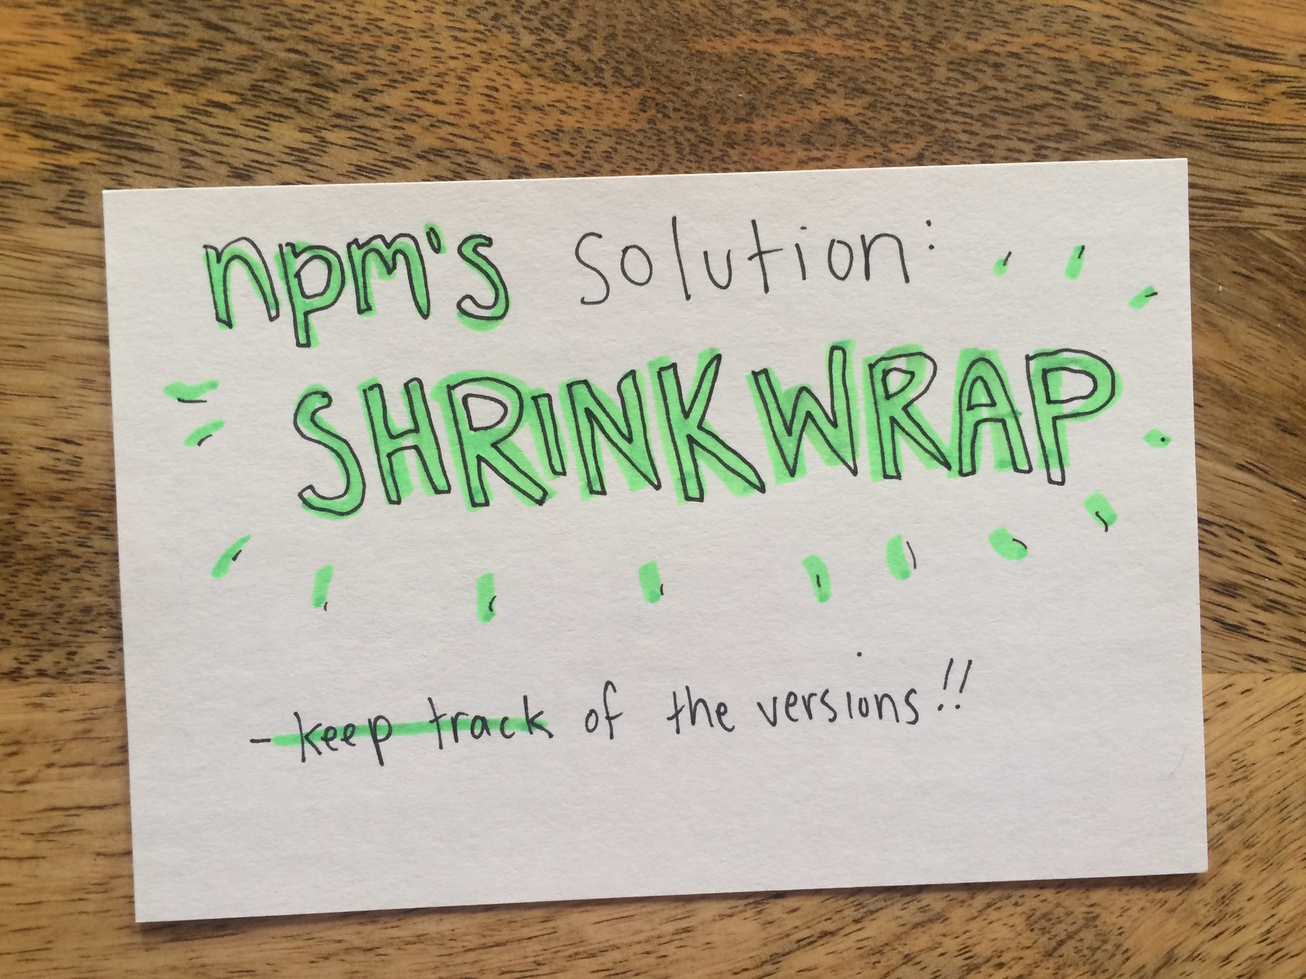 npm's solution:
SHRINKWRAP
- keep track of the versions!!